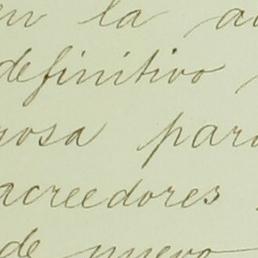 en la a
definitivo
osa par
acreedores
de nuevo